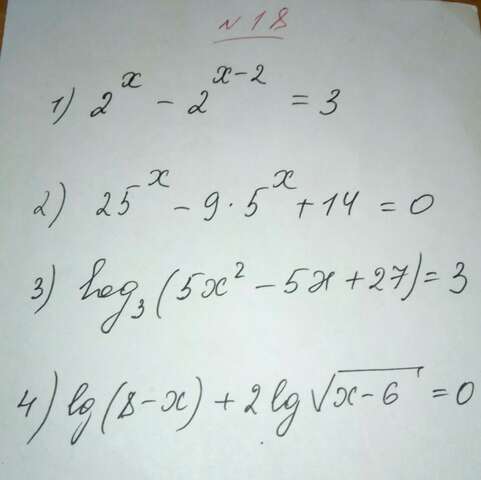 N18
1) 2^x - 2^{x-2} = 3
2) 25^x - 9·5^x + 14 = 0
3) log₃(5x² - 5x + 27) = 3
4) lg(8-x) + 2lg√(x-6) = 0